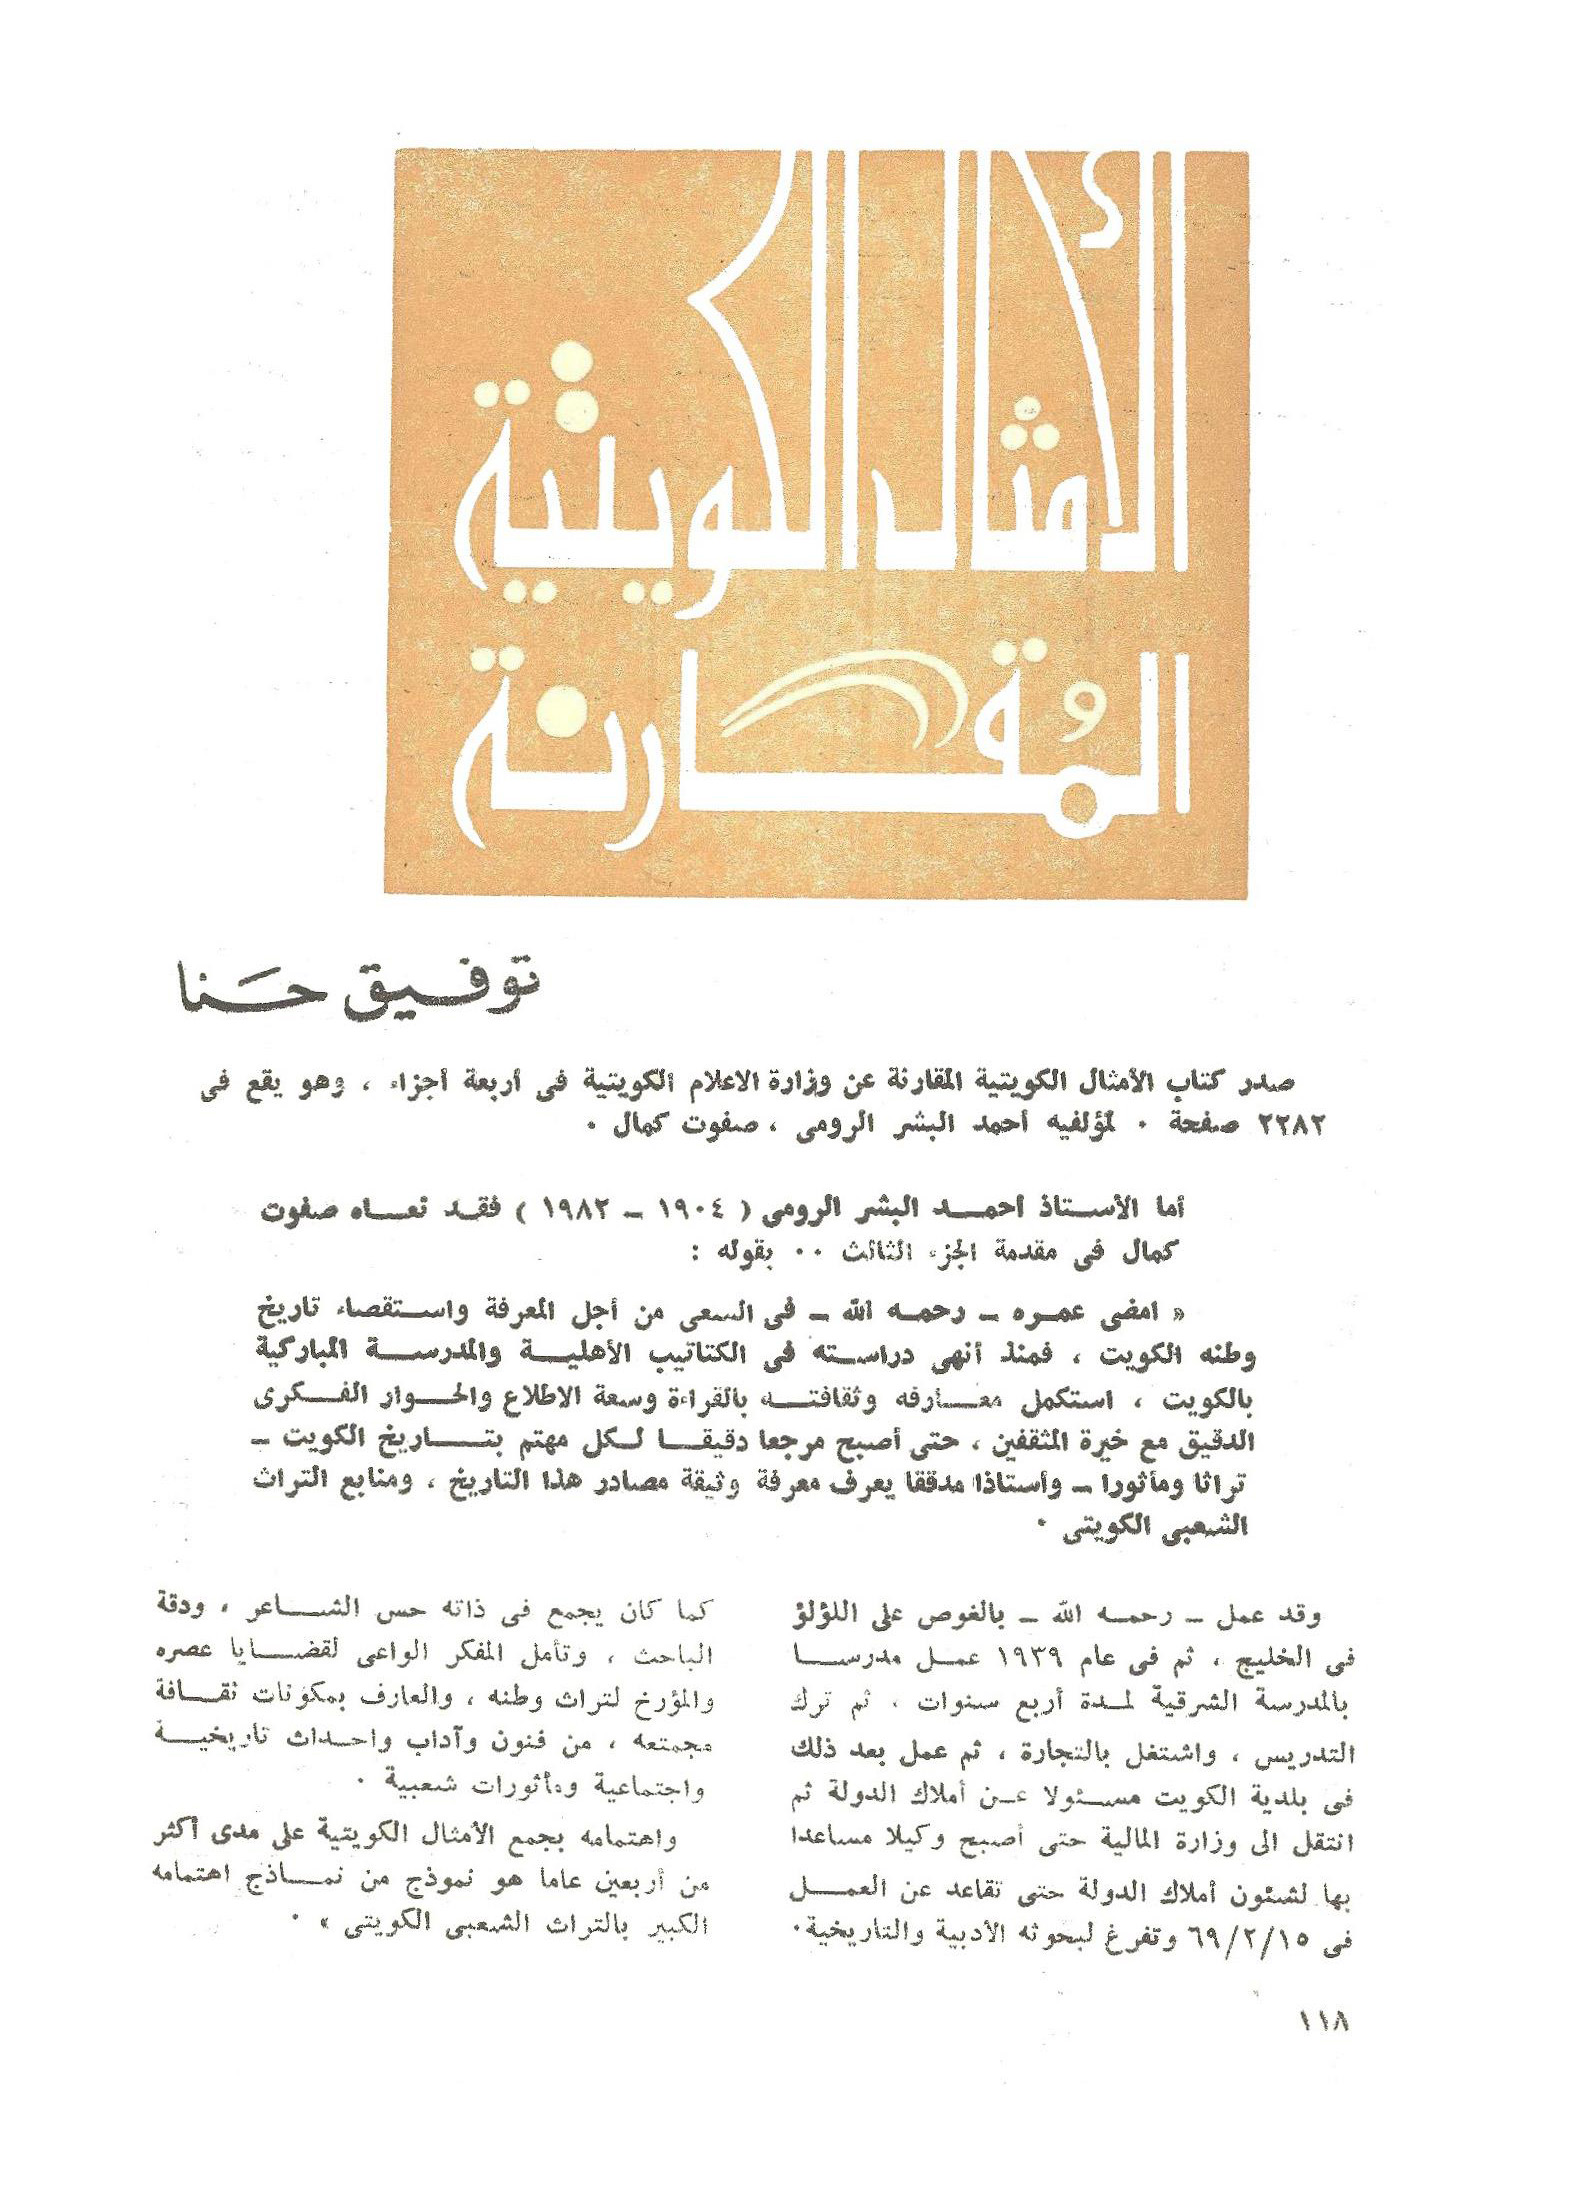 الأمثال الكويتية
المُقارنة
توفيق حَنا
صدر كتاب الأمثال الكويتية المقارنة عن وزارة الاعلام الكويتية فى أربعة أجزاء ، وهو يقع فى
٢٢٨٢ صفحة ٠ لمؤلفيه أحمد البشر الرومى ، صفوت كمال ٠
أما الأستاذ احمد البشر الرومى ( ١٩٠٤ – ١٩٨٢ ) فقد نعاه صفوت
كمال فى مقدمة الجزء الثالث ٠٠ بقوله :
« امضى عمره – رحمه الله – فى السعى من أجل المعرفة واستقصاء تاريخ
وطنه الكويت ، فمنذ أنهى دراسته فى الكتاتيب الأهلية والمدرسة المباركية
بالكويت ، استكمل معارفه وثقافته بالقراءة وسعة الاطلاع والحوار الفكرى
الدقيق مع خيرة المثقفين ، حتى أصبح مرجعا دقيقا لكل مهتم بتاريخ الكويت –
تراثا ومأثورا – وأستاذا مدققا يعرف معرفة وثيقة مصادر هذا التاريخ ، ومنابع التراث
الشعبى الكويتى ٠
وقد عمل – رحمه الله – بالغوص على اللؤلؤ
فى الخليج ، ثم فى عام ١٩٣٩ عمل مدرسا
بالمدرسة الشرقية لمدة أربع سنوات ، ثم ترك
التدريس ، واشتغل بالتجارة ، ثم عمل بعد ذلك
فى بلدية الكويت مسئولا عن أملاك الدولة ثم
انتقل الى وزارة المالية حتى أصبح وكيلا مساعدا
بها لشئون أملاك الدولة حتى تقاعد عن العمل
فى ٦٩/٢/١٥ وتفرغ لبحوثه الأدبية والتاريخية ٠
كما كان يجمع فى ذاته حس الشاعر ، ودقة
الباحث ، وتأمل المفكر الواعى لقضايا عصره
والمؤرخ لتراث وطنه ، والعارف بمكونات ثقافة
مجمتعه ، من فنون وآداب واحداث تاريخية
واجتماعية ومأثورات شعبية ٠
واهتمامه بجمع الأمثال الكويتية على مدى أكثر
من أربعين عاما هو نموذج من نماذج اهتمامه
الكبير بالتراث الشعبى الكويتى » ٠
١١٨